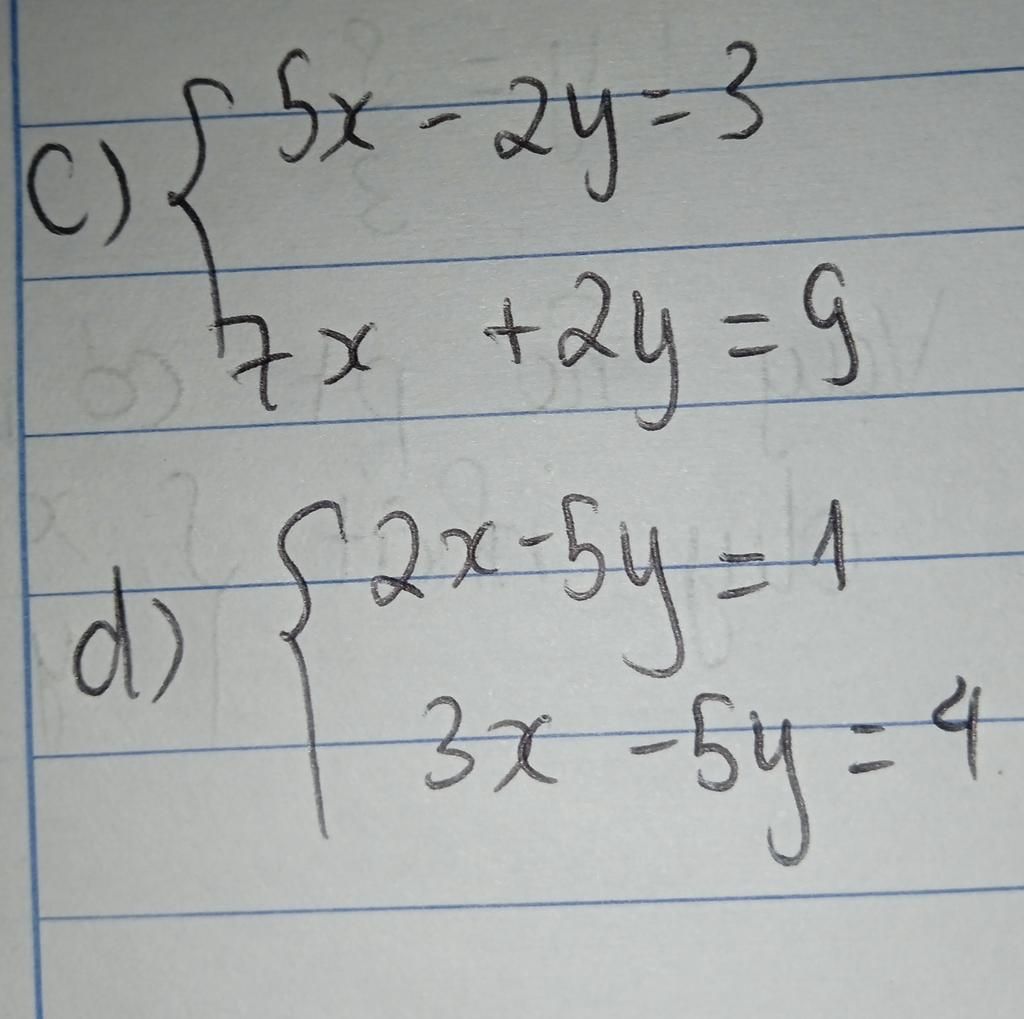 c) { 5x - 2y = 3
7x + 2y = 9
d) { 2x - 5y = 1
3x - 5y = 4